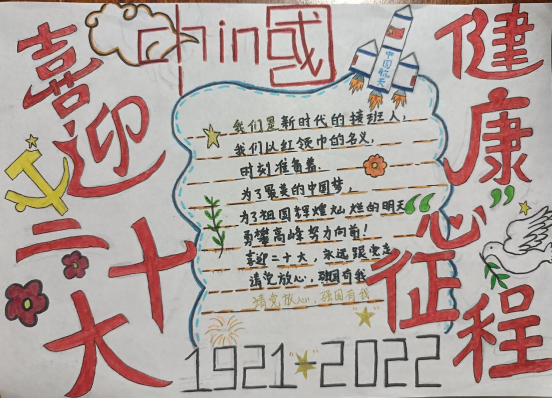 喜迎二十大
chin国
中国航天
健康“心”征程
我们是新时代的接班人,
我们以红领巾的名义,
时刻准备着.
为了最美的中国梦,
为了祖国辉煌灿烂的明天
勇攀高峰努力向前!
喜迎二十大,永远跟党走
请党放心,强国有我
请党放心,强国有我
1921-2022